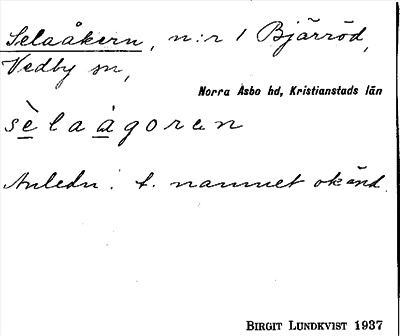 Selaåkern, n:r 1 Bjärröd,
Vedby sn,
Norra Åsbo hd, Kristianstads län
sèlaågoran
Anledn. t. namnet okänd.
BIRGIT LUNDKVIST 1937